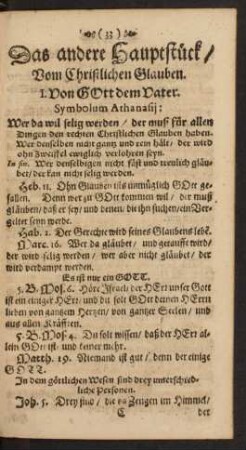 ( 33 )
Das andere Hauptstück /
Vom Christlichen Glauben.
I. Von GOtt dem Vater.
Symbolum Athanasij:
Wer da wil selig werden / der muß für allen
Dingen den rechten Christlichen Glauben haben.
Wer denselben nicht gantz und rein hält / der wird
ohn Zweiffel ewiglich verlohren seyn.
In fin. Wer denselbigen nicht fäst und treulich gläu-
bet / der kan nicht selig werden.
Heb. 11. Ohn Glauben ists unmüglich GOtt ge-
fallen. Denn wer zu GOtt kommen wil / der muß
gläuben / daß er sey / und denen / die ihn suchen / ein Ver-
gelter seyn werde.
Hab. 2. Der Gerechte wird seines Glaubens lebẽ.
Marc. 16. Wer da gläubet / und getaufft wird /
der wird selig werden / wer aber nicht gläubet / der
wird verdampt werden.
Es ist nur ein GOTT.
5. B. Mos. 6. Höre Israel der HErr unser Gott
ist ein einiger HErr / und du solt GOtt deinen HErrn
lieben von gantzem Hertzen / von gantzer Seelen / und
aus allen Kräfften.
5. B. Mos. 4. Du solt wissen / daß der HErr allein
GOtt ist und keiner mehr.
Matth. 19. Niemand ist gut / denn der einige
GOTT.
In dem göttlichen Wesen sind drey unterschied-
liche Personen.
Joh. 5. Drey sind / die da Zeugen im Himmel /
C der